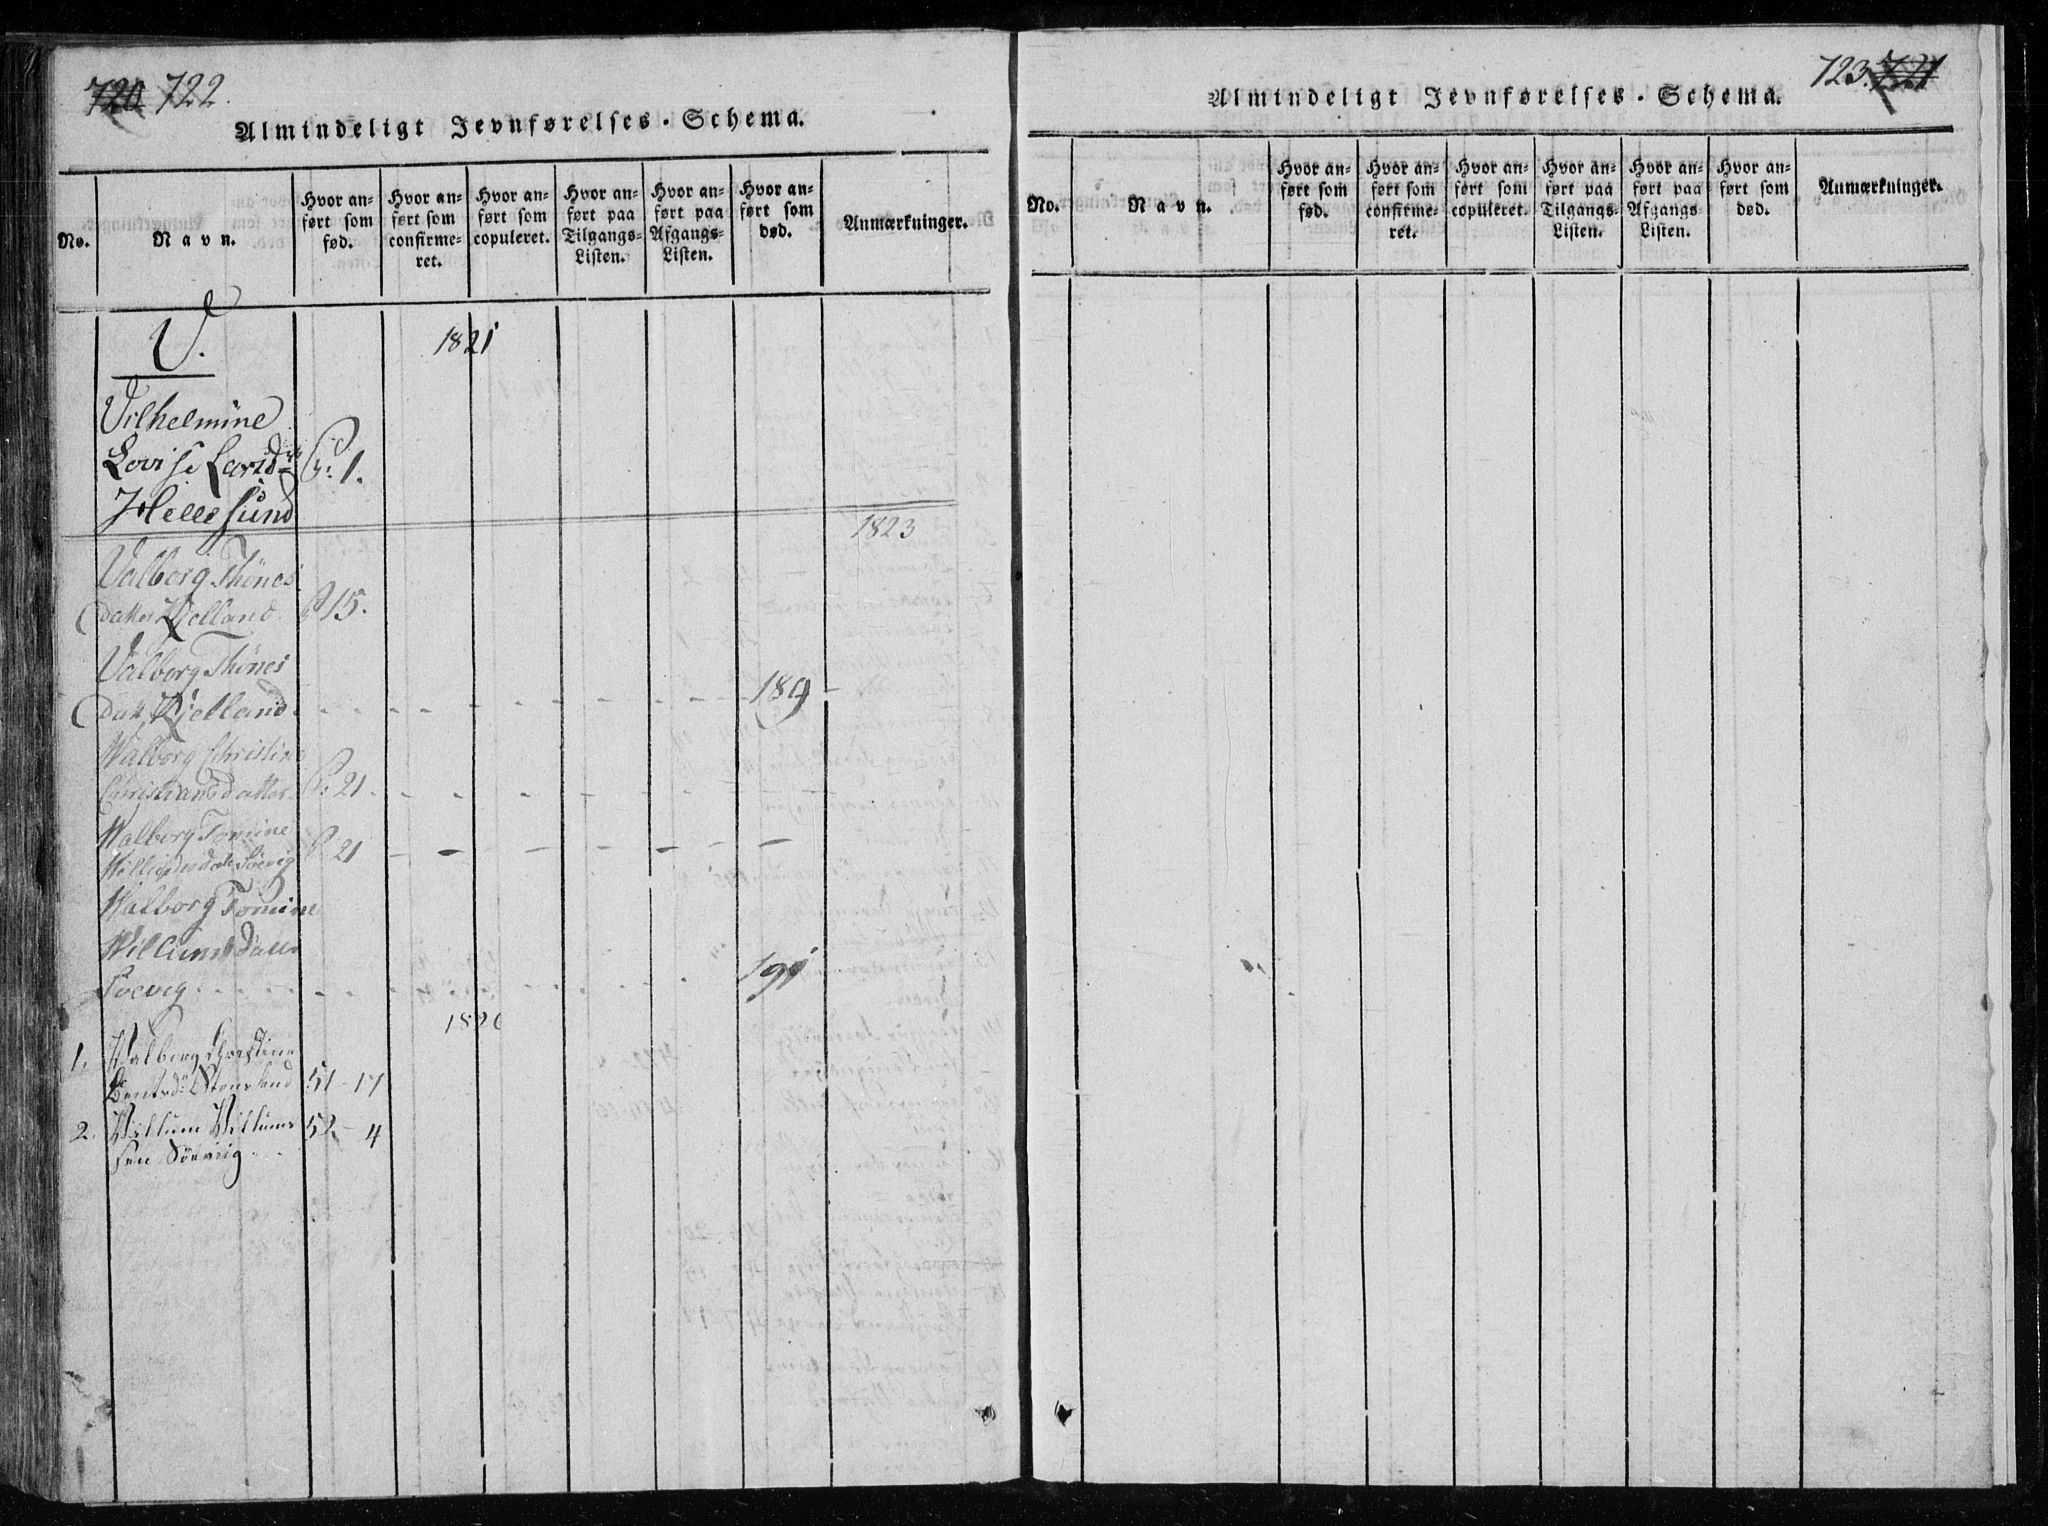 720 722.
Almindeligt Jevnførelses-Schema.
No.
Navn.
Hvor an-
ført som
fød.
Hvor an-
ført som
confirme-
ret.
Hvor an-
ført som
copuleret.
Hvor an-
ført paa
Tilgangs-
Listen.
Hvor an-
ført paa
Afgangs-
Listen.
Hvor an-
ført som
død.
Anmærkninger.
V.
1821
Vilhelmine
Lovise
1.
Hellesund
1823
Valborg Thönes
Datter Kjelland 15.
Valborg Thönes
Datt Kjelland - - - - - - - 189 -
Walborg Christine
Christiansdatter 21 - - - - -
Walborg Tomine
Söevig 21 - - - - -
Walborg Tomine
Willumsdatter
Soevig - - - - - - - 191
182
1. Walborg Christine
51-17
2. Willum Willums
sen Söevig 52-4
723. 721
Almindeligt Jevnførelses-Schema.
No.
Navn.
Hvor an-
ført som
fød.
Hvor an-
ført som
confirme-
ret.
Hvor an-
ført som
copuleret.
Hvor an-
ført paa
Tilgangs-
Listen.
Hvor an-
ført paa
Afgangs-
Listen.
Hvor an-
ført som
død.
Anmærkninger.